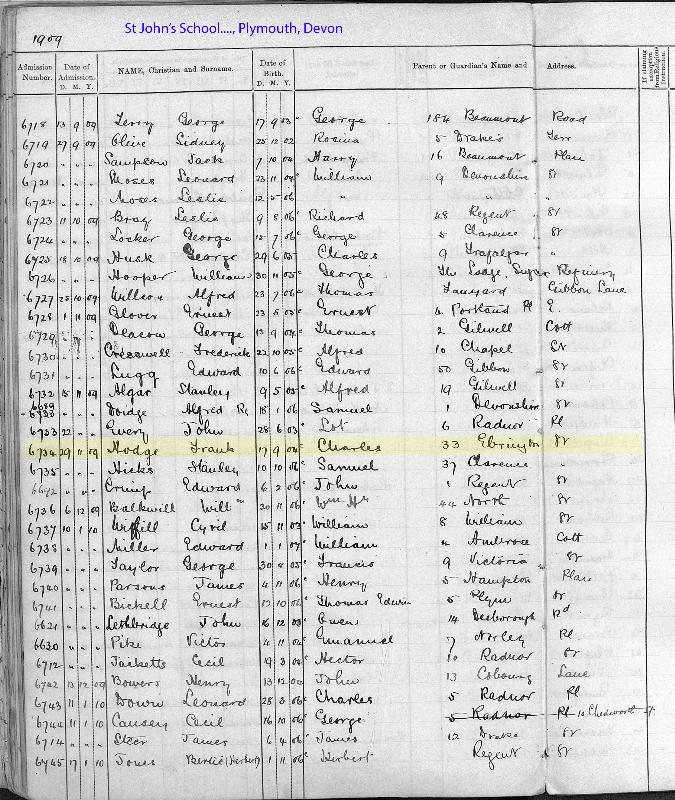 St John's School...., Plymouth, Devon
1909
Admission Number. Date of Admission. D. M. Y. NAME, Christian and Surname. Date of Birth. D. M. Y. Parent or Guardian's Name and Address. If claiming exemption from Religious Instruction.
6718 13 9 09 Terry George 17 9 03 George 184 Beaumont Road
6719 27 9 09 Olive Sidney 25 12 02 Rosina 5 Drake's Terr
6720 " " " Sampson Jack 7 10 04 Harry 16 Beaumont Place
6721 " " " Moses Leonard 23 11 04 William 9 Devonshire St
6722 " " " Moses Leslie 12 5 06 " " "
6723 11 10 09 Bray Leslie 9 8 06 Richard 48 Regent St
6724 " " " Locker George 15 7 06 George 5 Clarence St
6725 18 10 09 Husk George 29 6 05 Charles 9 Trafalgar "
6726 " " " Hooper William 30 11 05 George The Lodge, Sugar Refinery
6727 25 10 09 Willson Alfred 23 7 06 Thomas Tanyard Gibbon Lane
6728 1 11 09 Glover Ernest 23 5 05 Ernest 4 Portland Pl E.
6729 " " " Deacon George 13 9 04 Thomas 2 Gilwell Cott
6730 " " " Cresswell Frederick 22 10 05 Alfred 10 Chapel St
6731 " " " Lugg Edward 10 6 06 Edward 50 Gibbon St
6732 15 11 09 Algar Stanley 9 5 05 Alfred 19 Gilwell St
6689 Dodge Alfred 18 1 06 Samuel 1 Devonshire St
6733 22 " " Every John 28 6 03 Lot 6 Radnor Pl
6734 29 11 09 Hodge Frank 17 9 04 Charles 33 Ebrington St
6735 " " " Hicks Stanley 10 10 06 Samuel 37 Clarence "
6672 " " " Crump Edward 6 2 06 John 1 Regent St
6736 6 12 09 Balkwill Willm 30 11 06 Wm Hy 44 North St
6737 10 1 10 Cyril 15 11 03 William 8 William St
6738 " " " Miller Edward 1 1 07 William 4 Ambrose Cott
6739 " " " Taylor George 30 4 05 Francis 9 Victoria St
6740 " " " Parsons James 4 11 06 Henry 5 Hampton Place
6741 " " " Bickell Ernest 17 10 06 Thomas Edwin 5 Plym St
6621 " " " Lethbridge John 16 12 03 Owen 14 Desborough Rd
6630 " " " Pike Victor 4 11 04 Emanuel 7 Norley Pl
6712 " " " Jacketts Cecil 19 3 04 Hector 10 Radnor St
6742 13 12 09 Bowers Henry 13 12 04 John 13 Cobourg Lane
6743 11 1 10 Down Leonard 25 3 06 Charles 5 Radnor Pl
6744 11 1 10 Causey Cecil 16 10 06 George 5 Radnor Pl 10 Chedworth St
6714 " " " Steer James 6 4 06 James 12 Drake St
6745 17 1 10 Jones Bertie (Herbert) 1 11 06 Herbert Regent St